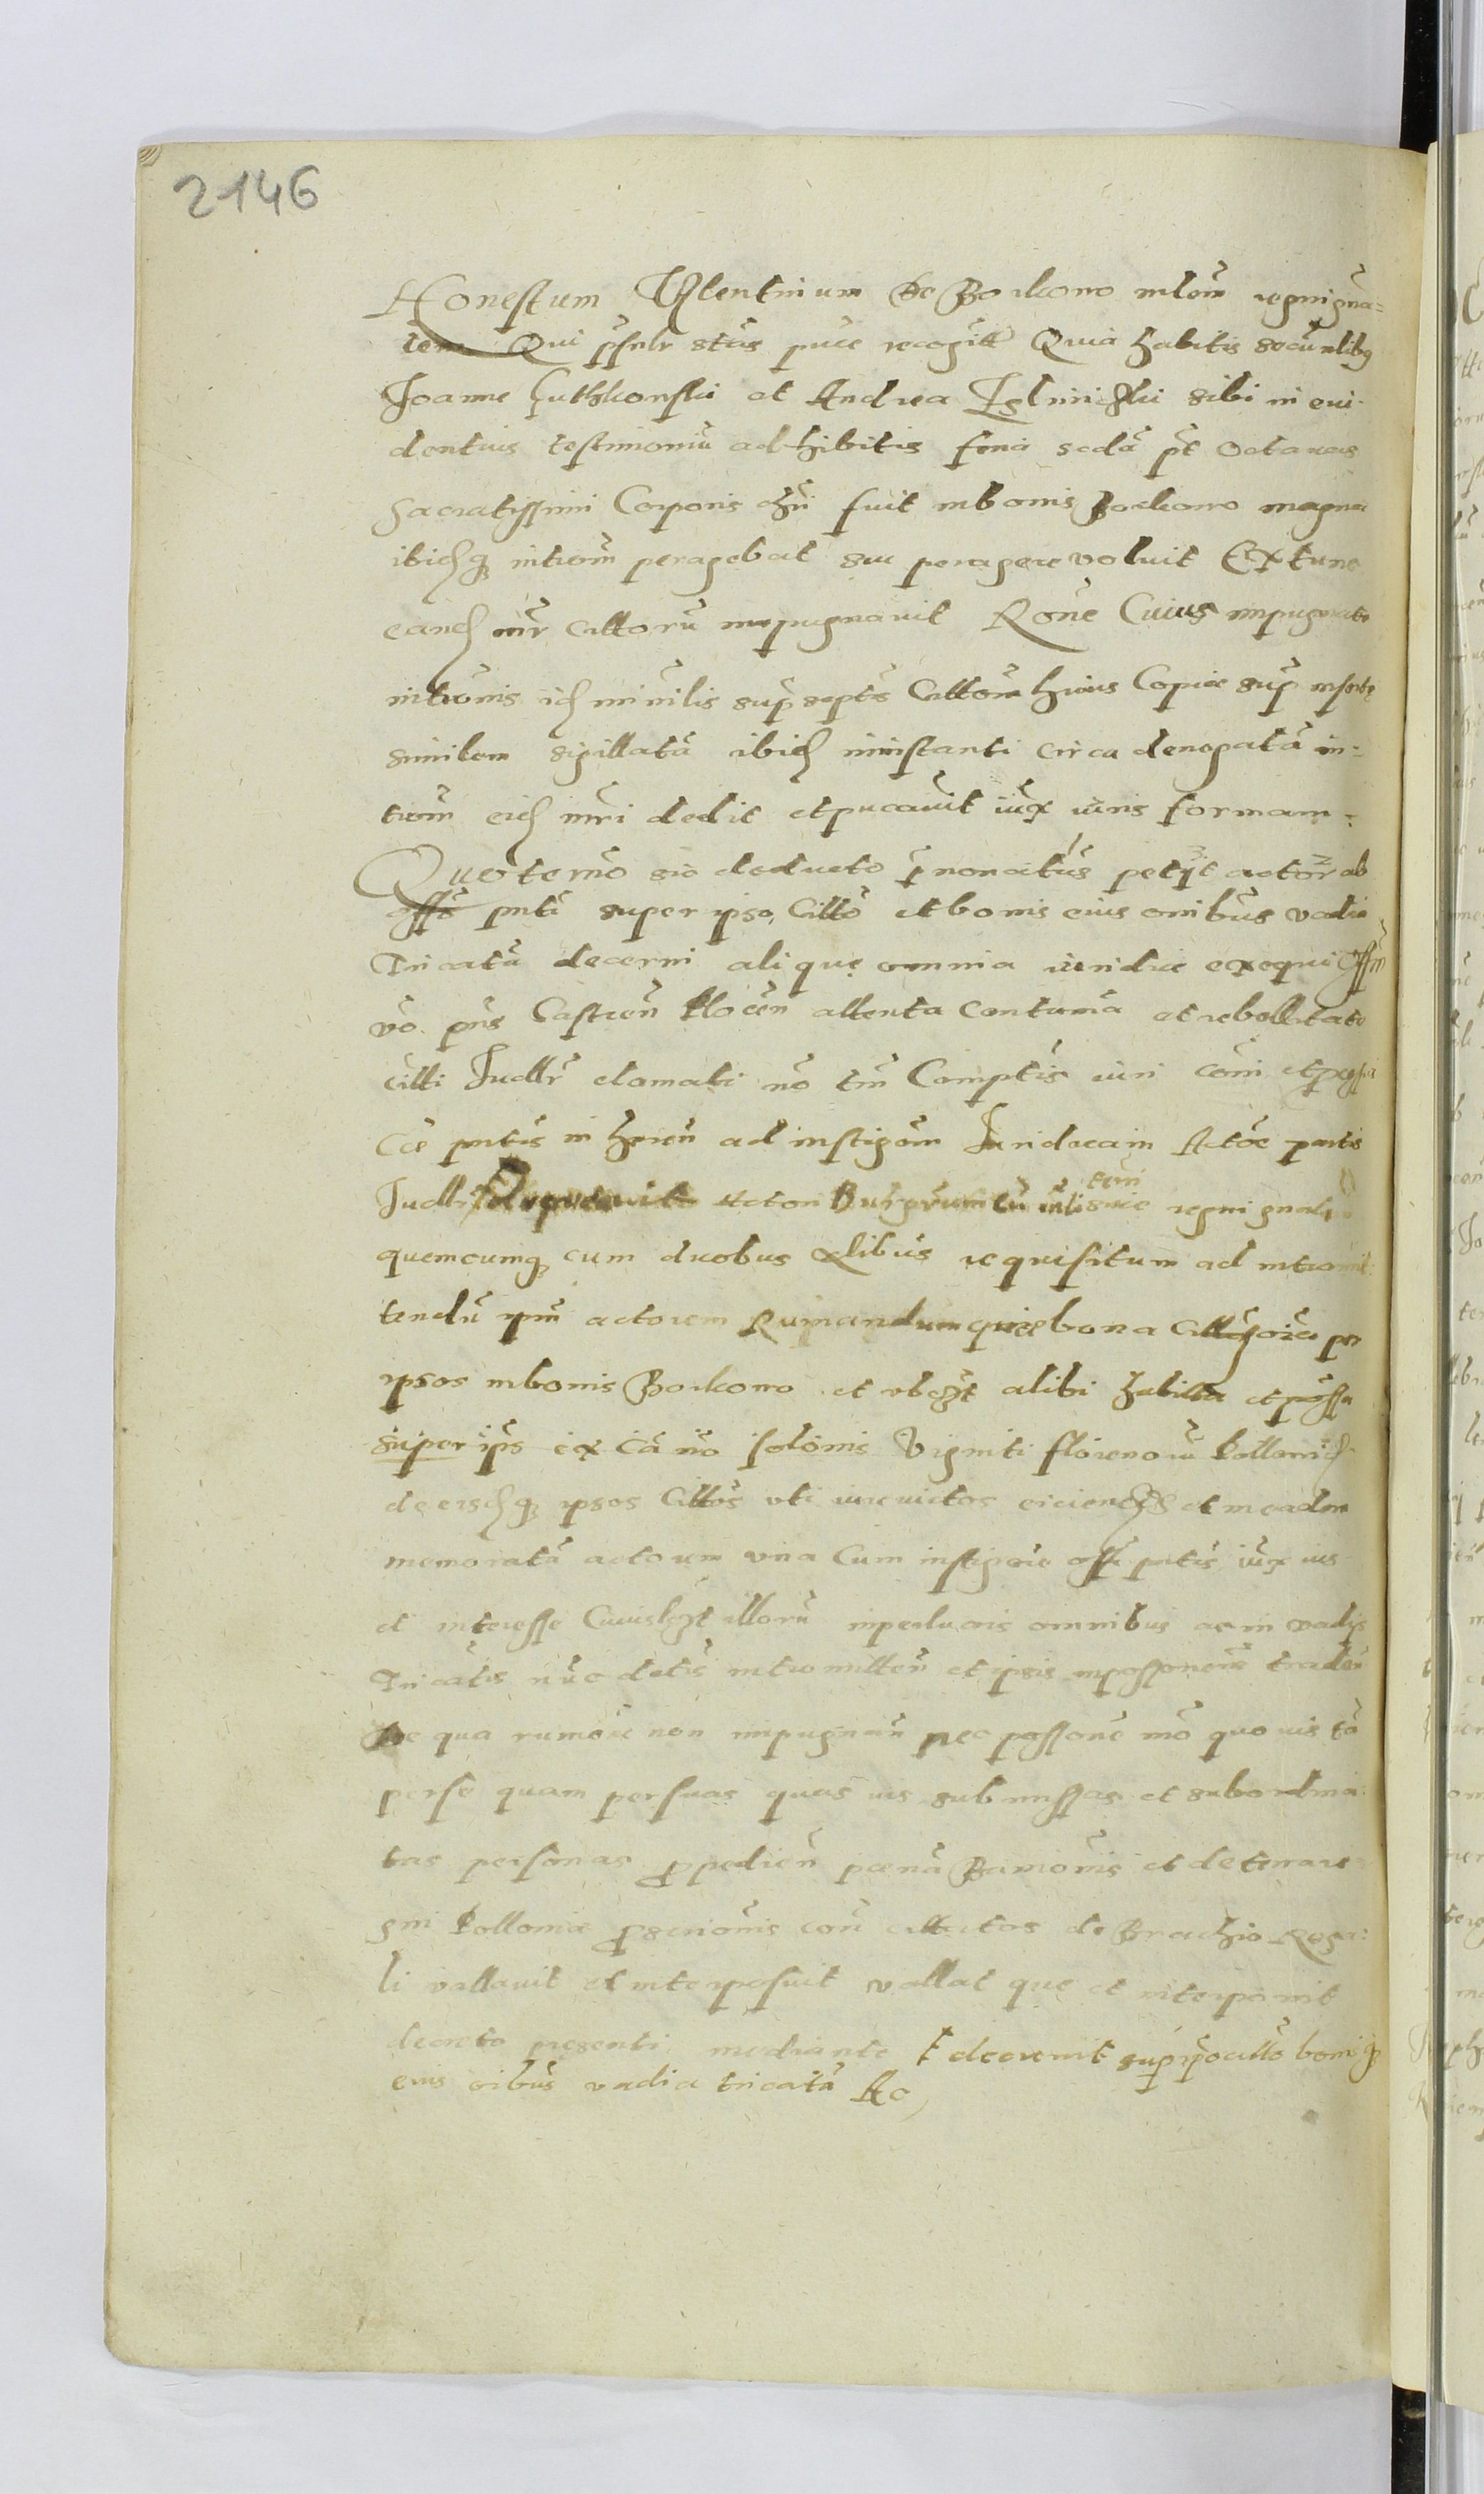 2146
Honestum Valentinum de Borkowo mlem regni gna=
lem Qui psnlr stas puce recogtt Quia habitis secu nlibg
Joanne Guthkonski et Andrea sibi in eui-
dentius testimoniu adhibitis feria scda pt octauas
Sacratissimi Corporis chri fuit in bonis Borkowo magna
ibidq introm peragebat seu peragere voluit Ex tunc
eand mr cittoru impugnauit Rone Cuius impugnate
intromis id minrlis supscptis Cittom huius Copie sup inserte
similem sigillata ibid in instanti circa denegata in-
trom eid mri dedit et pucauit iux iuris formam.
Quo termo sic deducto p non citus petijt actor ab
offo pnti super ipso citto et bonis eius omibus vadia
Tri cata decerni aliqua omnia iuridice exequi Offm
vo pns Castren Plocen attenta contuma et rebellitate
citti Judlr clamati no tm Comptis iuri coni et
Cie pntis in heren ad instigom Juridicam Actoe pntis
Judlr Deputauit actori Burgrum cu mli suce regni gnali
temi
quemcumq cum duobus xlibus requisitum ad intromit
tendu ipm actorem Rumandumque bona citt oia per
ipsos in bonis Borkowo et vbcqt alibi habita et possa
super ips ex ca no solonis Viginti florenoru Polloni
de eisdq ipsos cittos vti iure victos eiciend et in eadem
memorata actorem vna cum instigore offi pntis iux ius
et interesse Cuiuslqt illoru in pecluoris omnibus ac in vadijs
Tri catis nuc detis intromitten et ipsis in possionem traden
De qua rumoie non impugnan nec possone mo quo uis ta
per se quam per suas quas uis submissas et subordina-
tas personas propedien poena Banionis et de terra re-
gni Polloniae proscriomis con cittatos de Brachio Rega-
li vallauit et interposuit vallat que et interponit
decreto presenti mediante et decreuit sup ipo citto bonisq
eius oibus vadia tricata &c